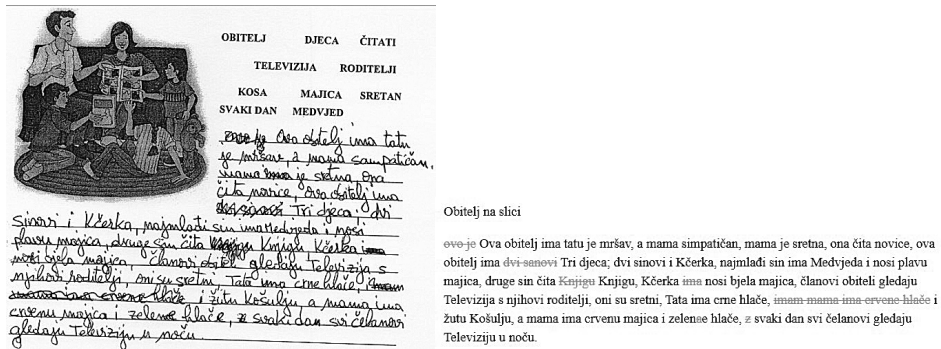 OBITELJ DJECA ČITATI
TELEVIZIJA RODITELJI
KOSA MAJICA SRETAN
SVAKI DAN MEDVJED
ovo je Ova obitelj ima tatu
je mršav, a mama sampatičan,
mama ima je sretna, ona
čita novice, ova obitelj ima
dvi sanovi Tri djeca; dvi
sinovi i Kčerka, najmlađi sin ima Medvjeda i nosi
plavu majica, druge sin čita Knjigu Knjigu, Kčerka ima
nosi bjela majica, članovi obitelj gledaju Televizija s
njihovi roditelji, oni su sretni, Tata ima crne hlače, imam
mama ima crvene hlače i žutu Košulju, a mama ima
crvenu majica i zelene hlače, z svaki dan svi čelanovi
gledaju Televiziju u noču.
Obitelj na slici
ovo je Ova obitelj ima tatu je mršav, a mama simpatičan, mama je sretna, ona čita novice, ova
obitelj ima dvi sanovi Tri djeca; dvi sinovi i Kčerka, najmlađi sin ima Medvjeda i nosi plavu
majica, druge sin čita Knjigu Knjigu, Kčerka ima nosi bjela majica, članovi obiteli gledaju
Televizija s njihovi roditelji, oni su sretni, Tata ima crne hlače, imam mama ima crvene hlače i
žutu Košulju, a mama ima crvenu majica i zelenee hlače, z svaki dan svi čelanovi gledaju
Televiziju u noču.